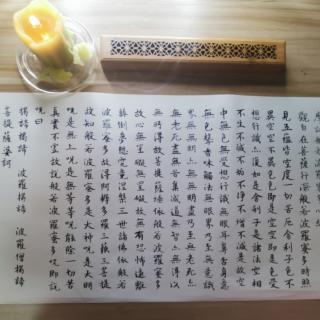 般若波羅蜜多心經
觀自在菩薩行深般若波羅蜜多時照
見五蘊皆空度一切苦厄舍利子色不
異空空不異色色即是空空即是色受
想行識亦復如是舍利子是諸法空相
不生不滅不垢不淨不增不減是故空
中無色無受想行識無眼耳鼻舌身意
無色聲香味觸法無眼界乃至無意識
界無無明亦無無明盡乃至無老死亦
無老死盡無苦集滅道無智亦無得以
無所得故菩提薩埵依般若波羅蜜多
故心無罣礙無罣礙故無有恐怖遠離
顛倒夢想究竟涅槃三世諸佛依般若
波羅蜜多故得阿耨多羅三藐三菩提
故知般若波羅蜜多是大神咒是大明
咒是無上咒是無等等咒能除一切苦
真實不虛故說般若波羅蜜多咒即說
咒曰
揭諦揭諦 波羅揭諦 波羅僧揭諦
菩提薩婆訶